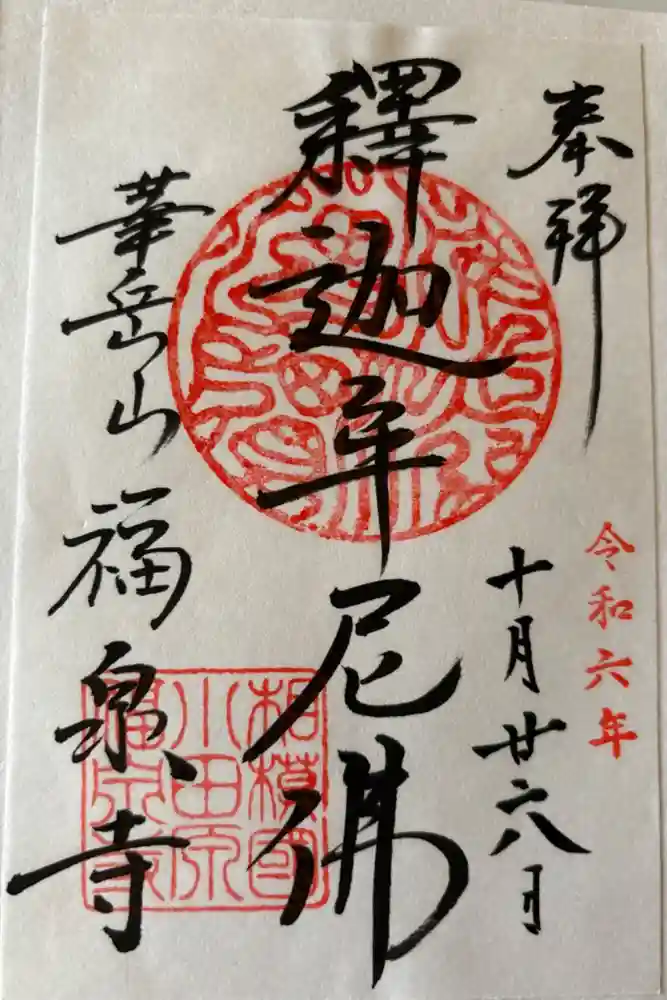 奉拝
令和六年
十月廿六日
釋迦牟尼佛
華岳山福泉寺
相模國
小田原
福泉寺